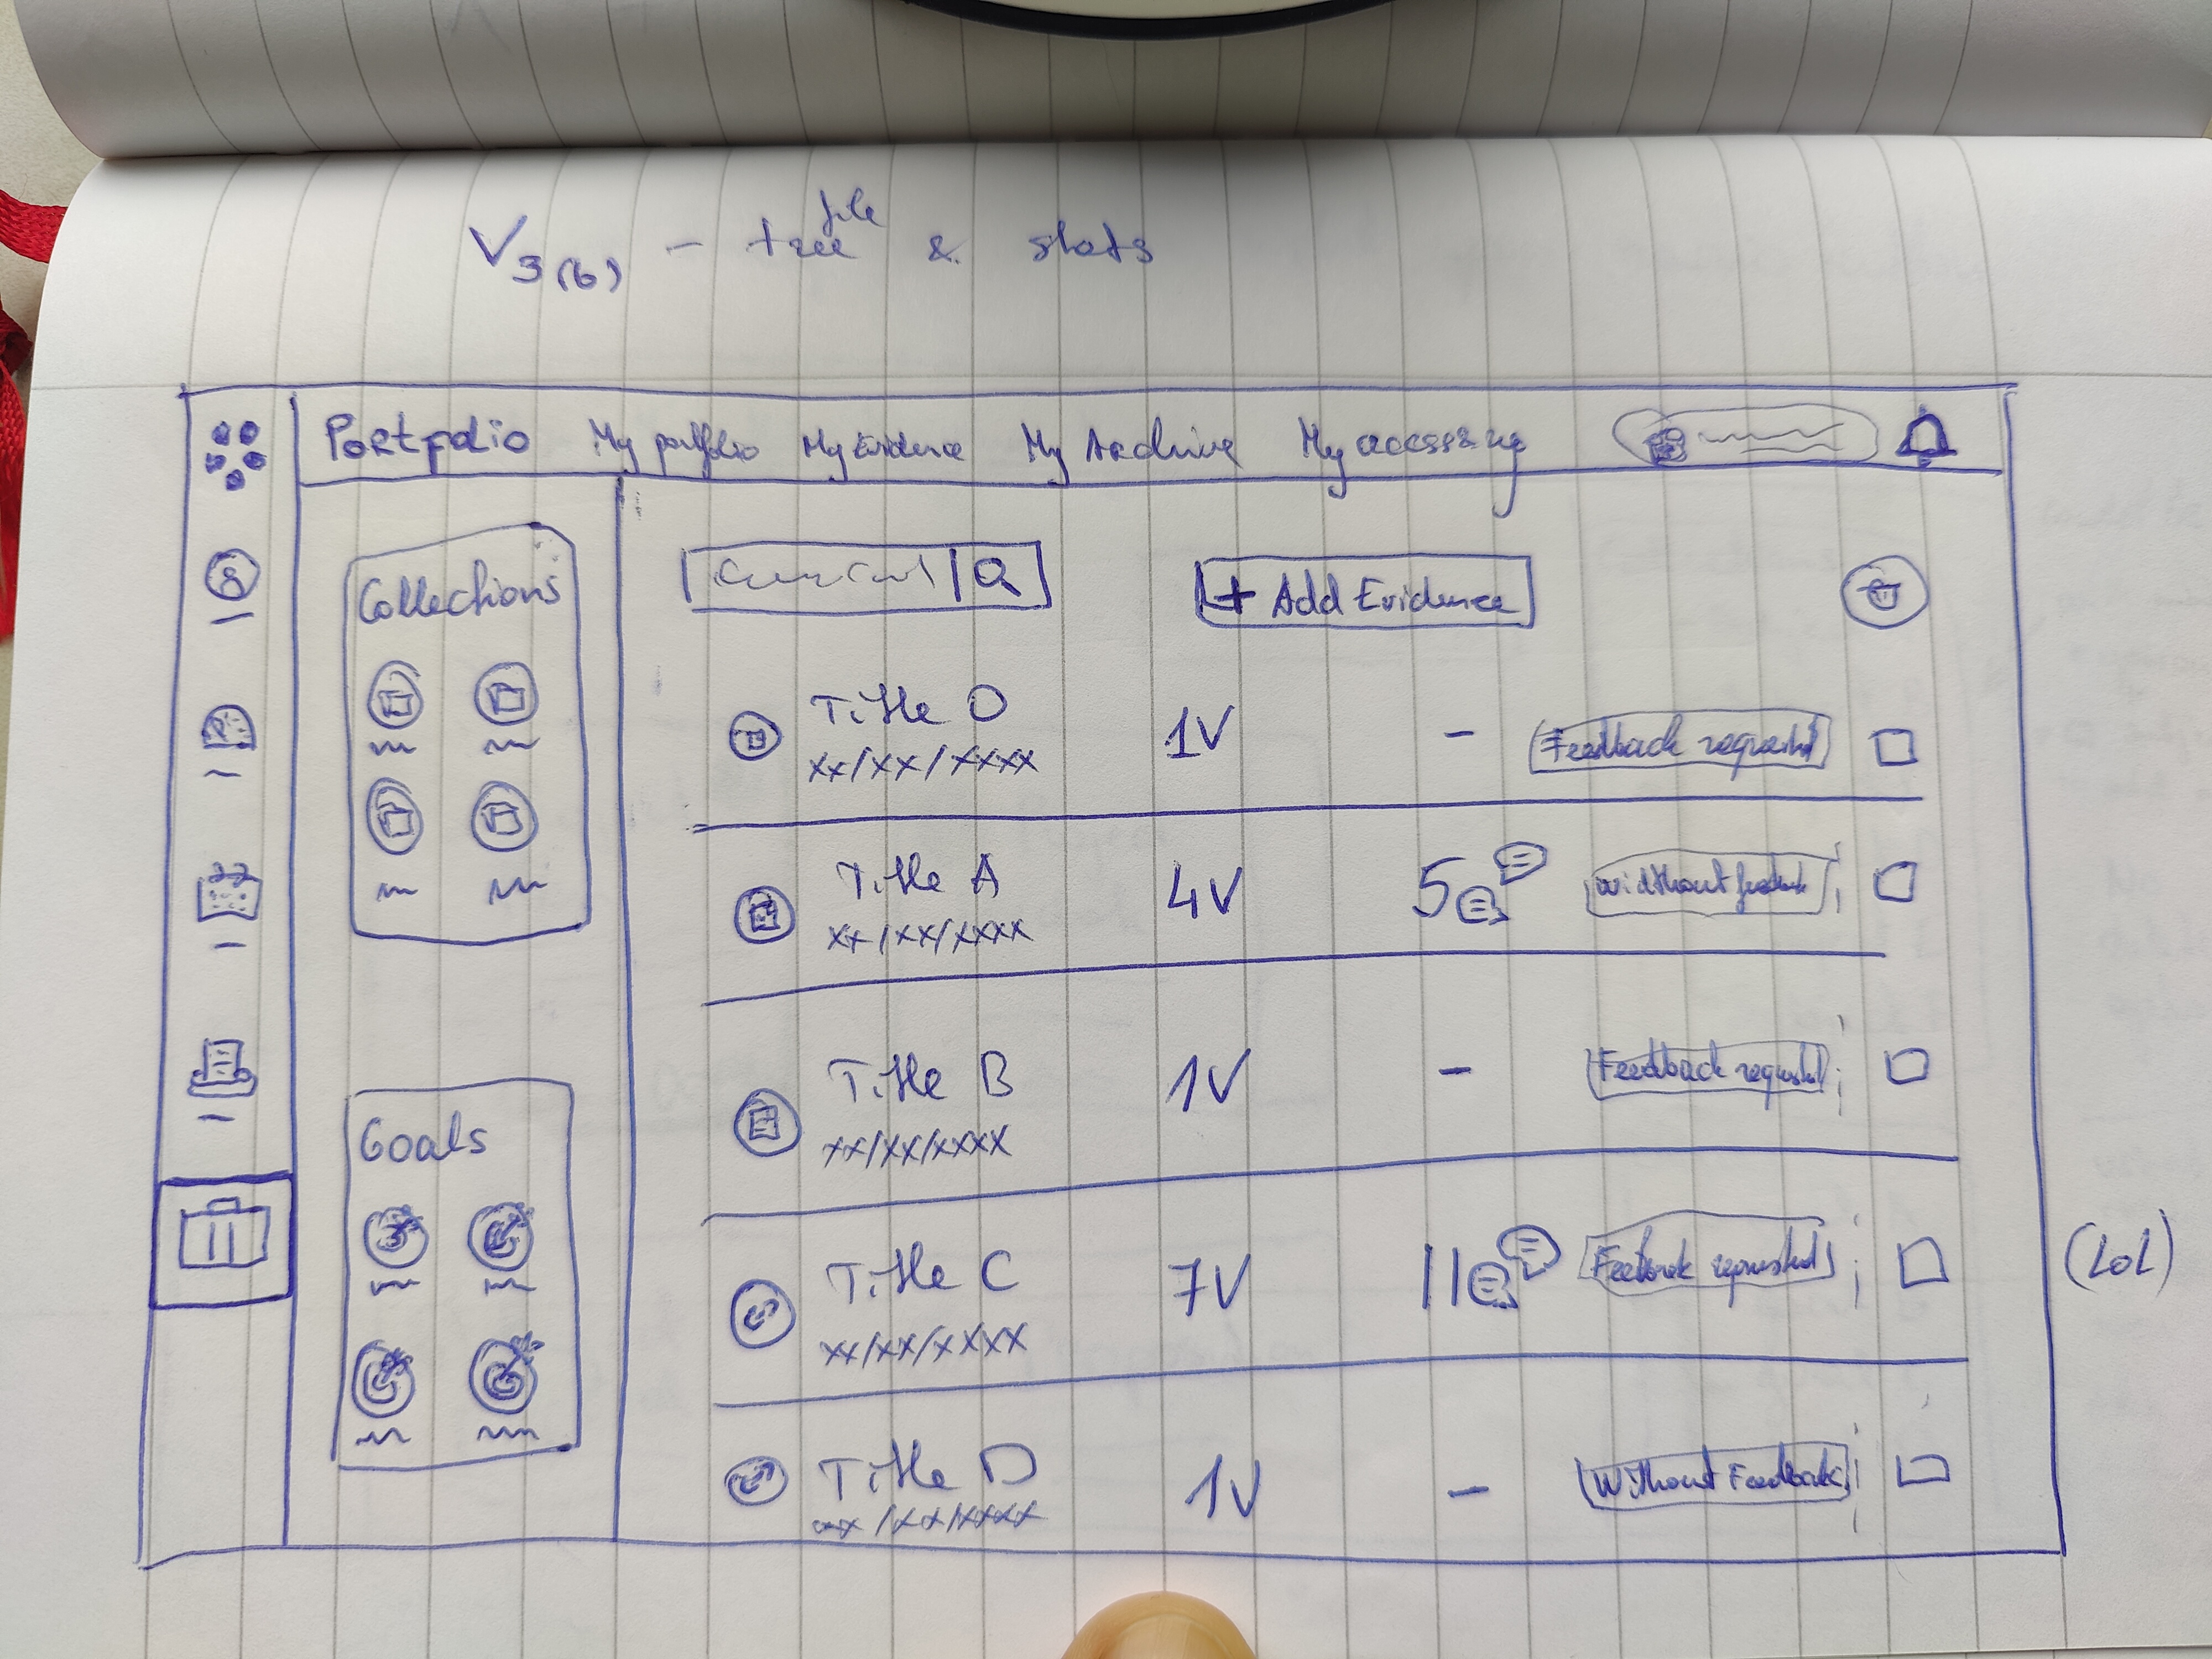 V3(b) - tree file & stats
Portfolio My portfolio My Evidence My Archive My accessing
Collections
+ Add Evidence
Title O
xx/xx/xxxx
1V - Feedback requested
Title A
xx/xx/xxxx
4V 5
Title B
xx/xx/xxxx
1V - Feedback requested
Goals
Title C
xx/xx/xxxx
7V 11 Feedback requested
(LOL)
Title D
xx/xx/xxxx
1V - Without Feedback